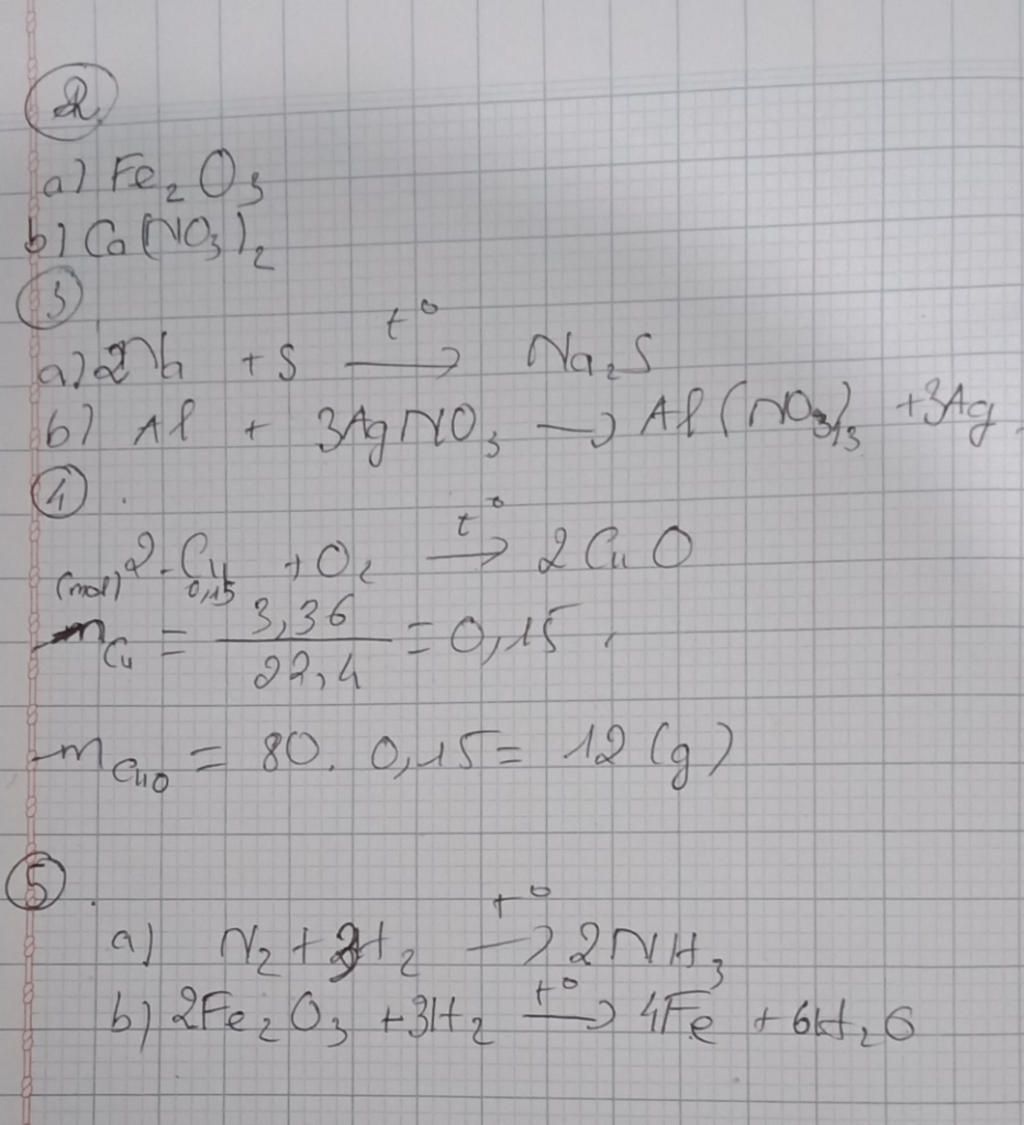 2
a) Fe₂O₃
b) Ca(NO₃)₂
3
a) 2Na + S →(t°) Na₂S
b) Al + 3AgNO₃ → Al(NO₃)₃ + 3Ag
4
2Cu + O₂ →(t°) 2CuO
(mol) 0,15
n Cu = 3,36 / 22,4 = 0,15
m CuO = 80. 0,15 = 12 (g)
5
a) N₂ + 3H₂ →(t°) 2NH₃
b) 2Fe₂O₃ + 3H₂ →(t°) 4Fe + 6H₂O